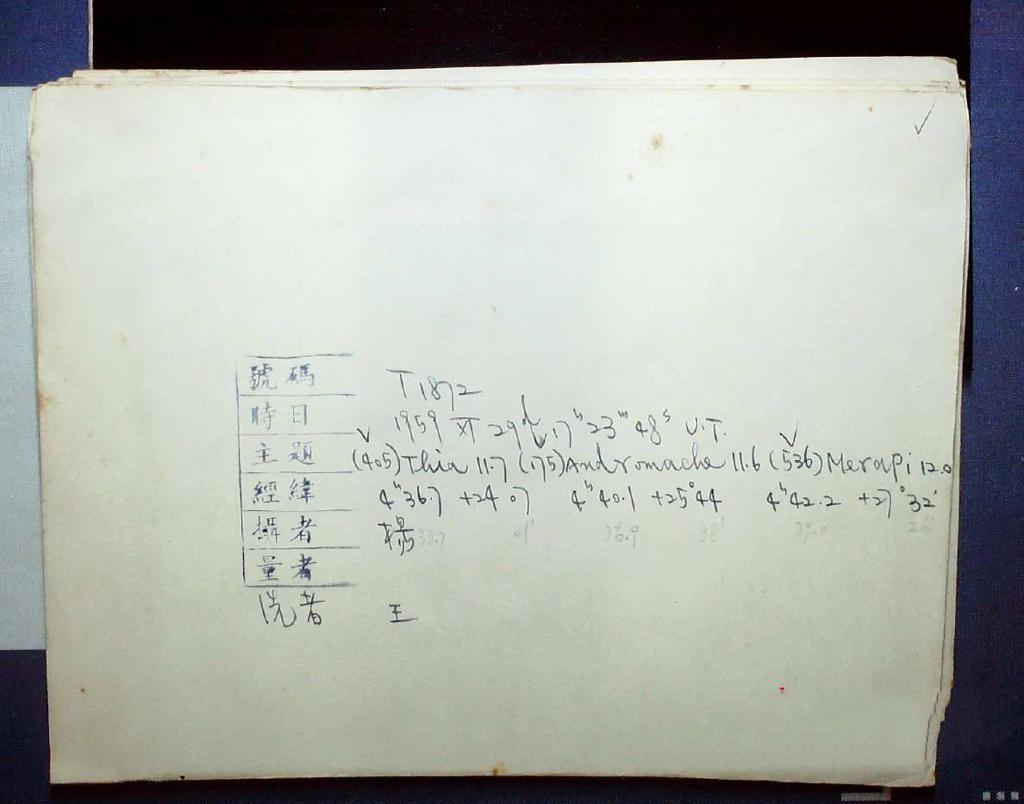 號碼 T 1872
時日 1959 XI 29 17ʰ 23ᵐ 48ˢ U.T.
主題 (405) Thia 11.7 (175) Andromache 11.6 (536) Merapi 12.0
經緯 4ʰ36.7 +24°07 4ʰ40.1 +25°44 4ʰ42.2 +27°32'
攝者 楊 33.7 01' 36.9 38' 39.0 26'
量者
洗者 王